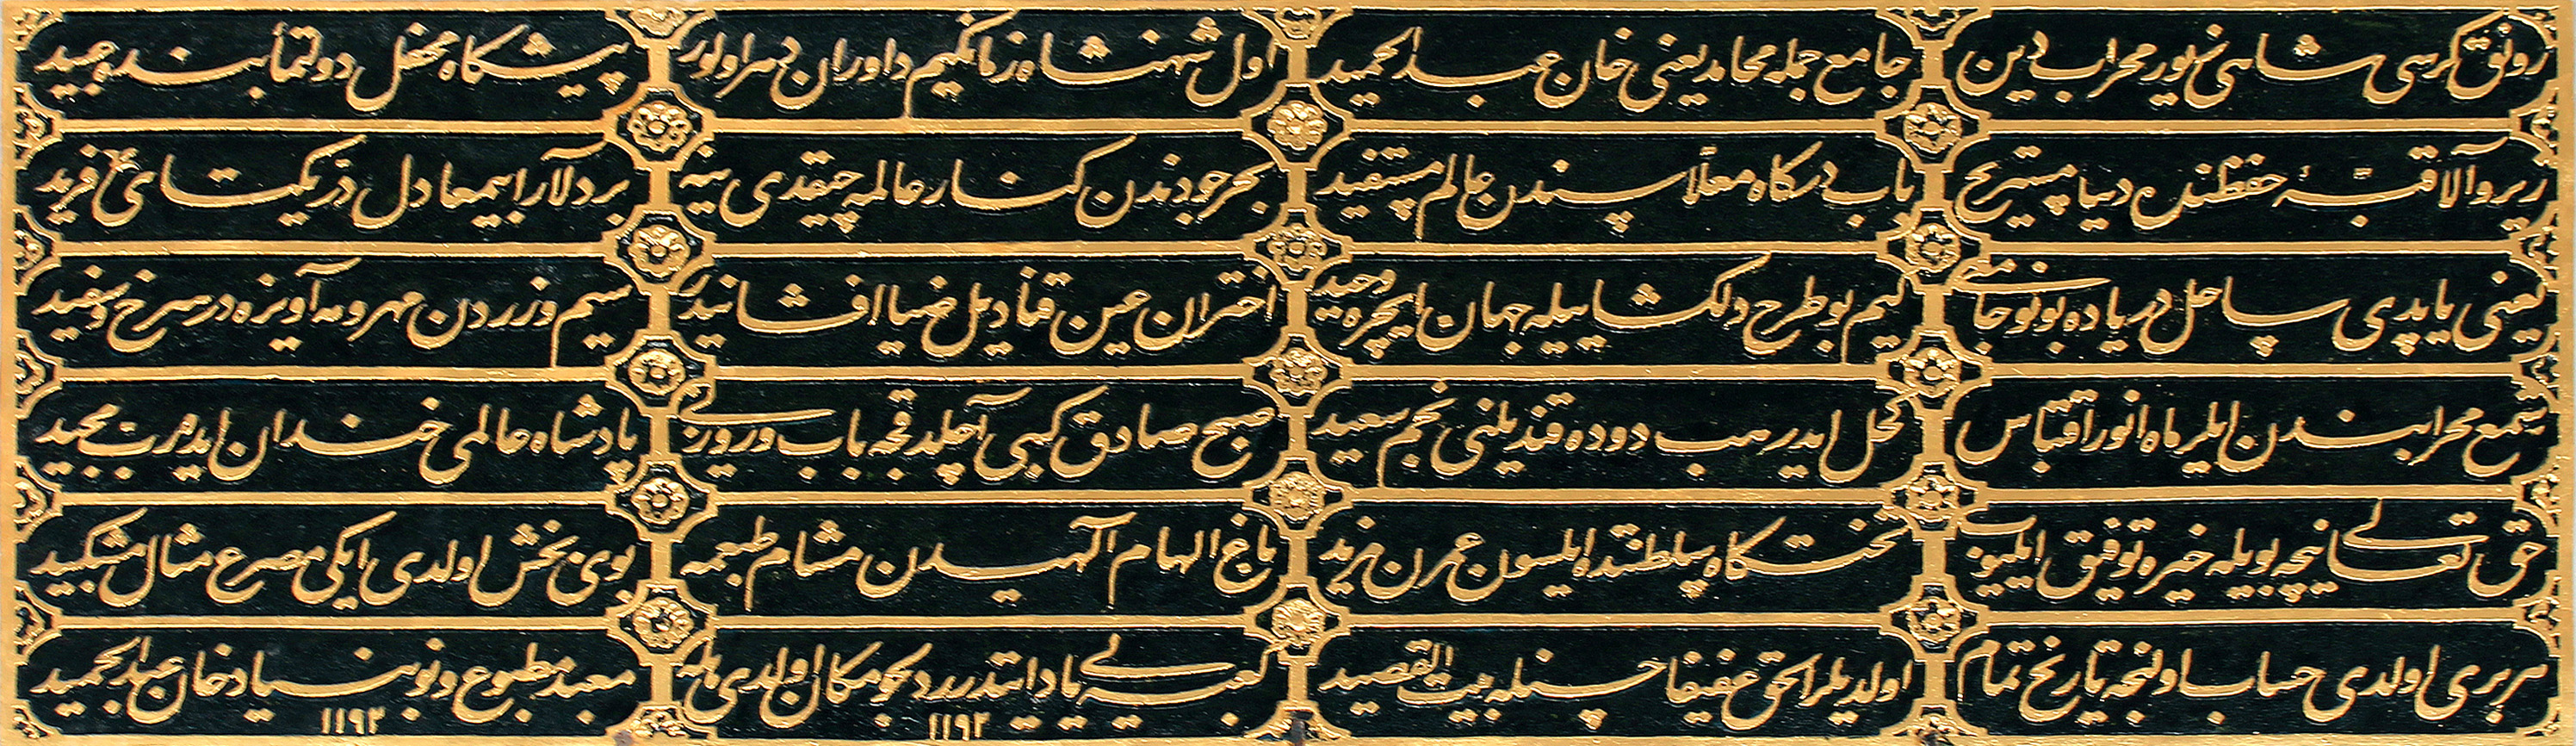 رونق كرسی شاهی زیور محراب دین
جامع جمله محامد یعنی خان عبد الحمید
اول شهنشاه زمانكیم داوران دهر اولور
پیشكاه محفل دولتمأبنده وحید
زیر والا قبۀ حفظنده دنیا مستریح
باب درگاه معلاسندن عالم مستفید
بحر جودندن كنار عالمه چیقدی ینه
بر دلارا بیمعادل در یكتای فرید
یعنی یاپدی ساحل دریاده بو نو جامعی
كیم بو طرح دلكشایله جهان ایچره وحید
اختران عین قنادیل ضیا افشانیدر
سیم و زردن مهر و مه آویزه در سرخ و سفید
شمع محرابندن ایلر ماه انور اقتباس
كحل ایدر هب دوده قندیلنی نجم سعید
صبح صادق كبی آچلدقجه باب و روزنی
پادشاه عالمی خندان ایده رب مجید
حق تعالی نیچه بویله خیره توفیق ایلیوب
تختگاه سلطنتده ایلسون عمرن مزید
باغ الهام الهیدن مشام طبعمه
بوی بخش اولدی ایكی مصرع مثال مشكبید
هر بری اولدی حساب اولنجه تاریخ تمام
اولدیلر الحق عفیفا حسنله بیت القصید
كعبه یی یاد ایتدرر دلجو مكان اولدی هله ١١٩٢
معبد مطبوع و نو بنیاد خان عبد الحمید ١١٩٢